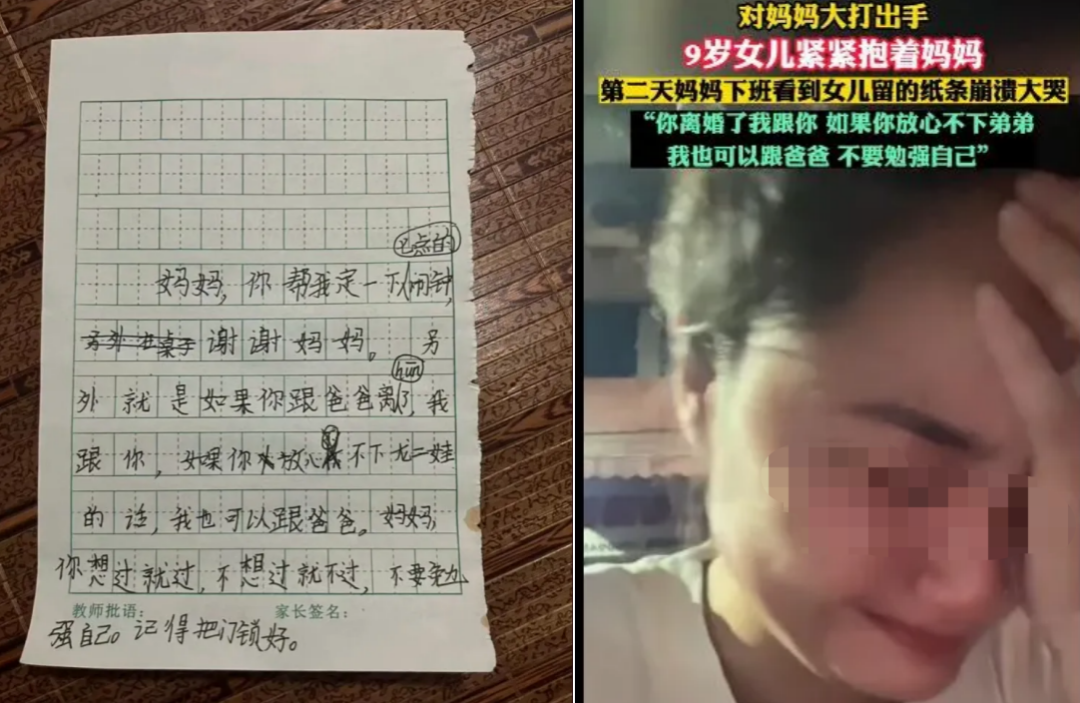 点的
妈妈，你帮我定一下闹钟，
谢谢妈妈。另
hūn
外就是如果你跟爸爸离了，我
跟你，如果你放心不下二娃
的话，我也可以跟爸爸。妈妈，
你想过就过，不想过就不过，不要勉
教师批语： 家长签名：
强自己。记得把门锁好。
对妈妈大打出手
9岁女儿紧紧抱着妈妈
第二天妈妈下班看到女儿留的纸条崩溃大哭
“你离婚了我跟你 如果你放心不下弟弟
我也可以跟爸爸 不要勉强自己”